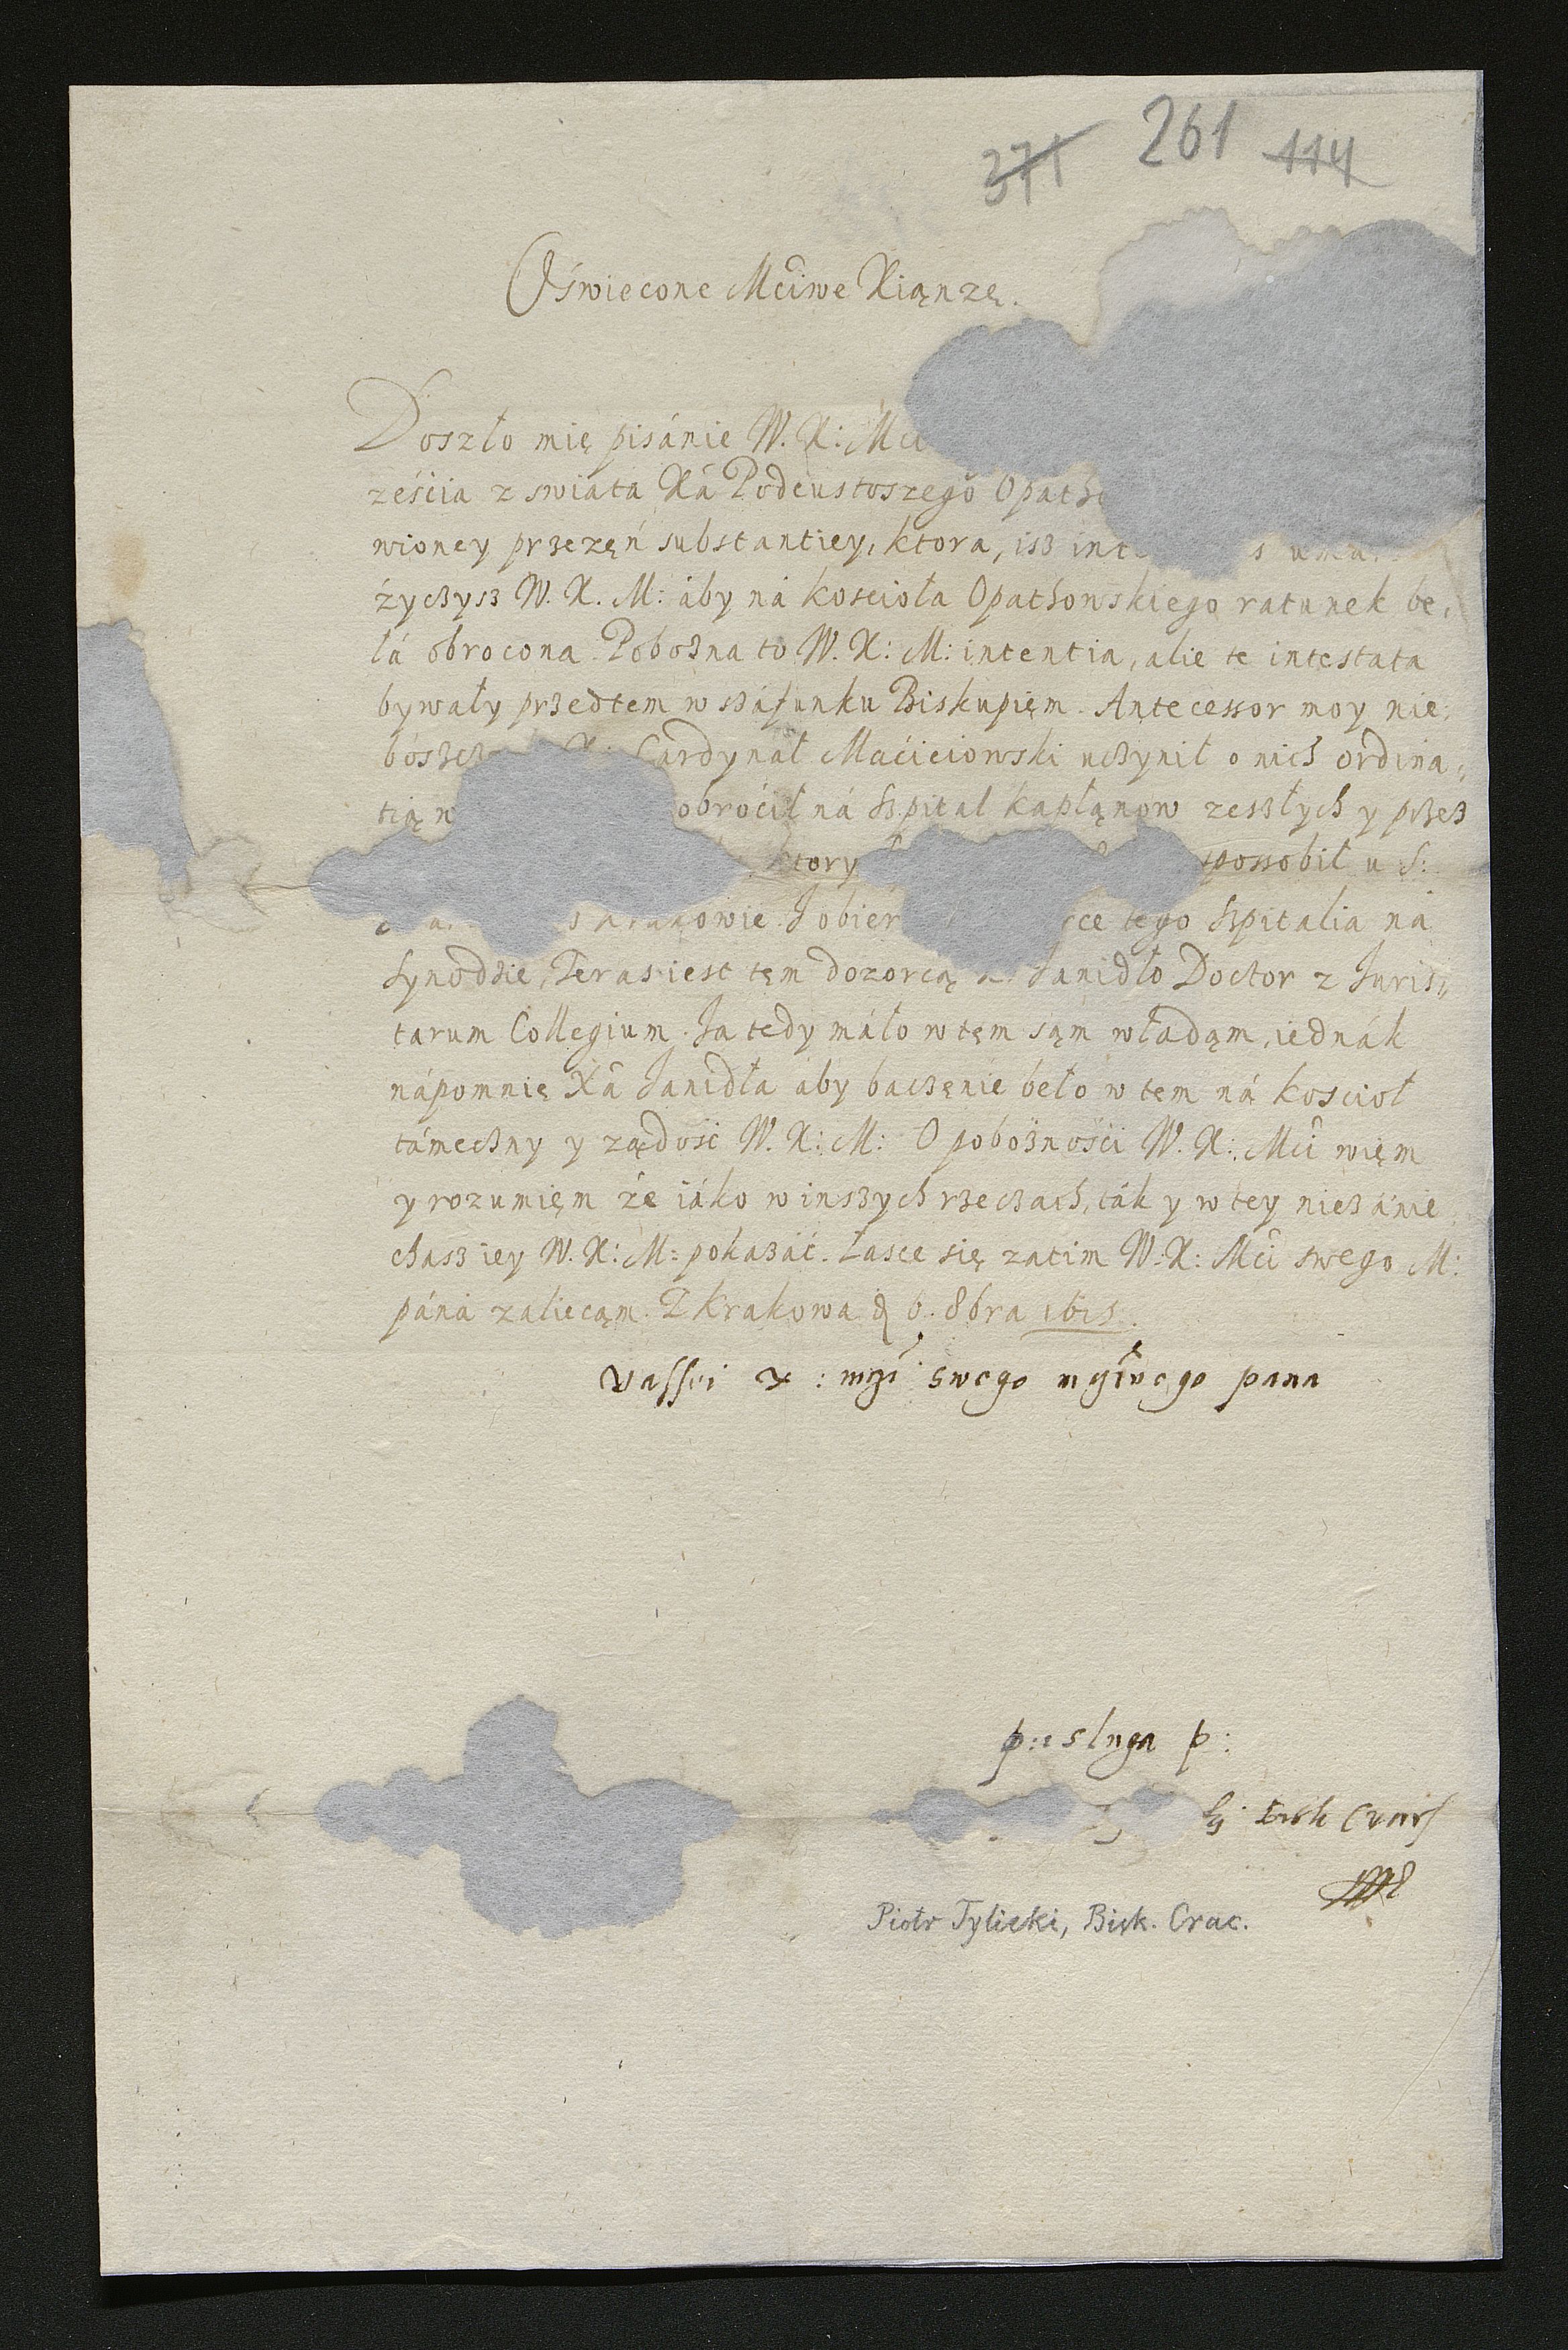 371 261 114
Oświecone Mciwe Xiąnzę.
Doszło mię pisánie W. X: Mci
ześćia z swiata Xá Podcustoszego Opatho
wioney przezęń substantiey, ktora, isz
życzysz W. X. M: áby ná kościoła Opathowskiego ratunek be,
łá obrocona. Pobożna to W. X: M: intentia, alie te intestata
bywały przedtem w száfunku Biskupięm. Antecessor moy nie,
Cardynał Maćieiowski uczynił o nich ordina,,
tią obroćił ná Szpital kapłąnow zeszłych y przez
ktory sposobił u S:
Krakowie. I obier ce tego Szpitalia na
Synodzie, Teras iest tęm dozorcą X. Janidło Doctor z Juris,,
tarum Collegium. Ja tedy máło w tęm sąm władąm, iednák
nápomnię Xá Janidła aby baczęnie beło w tem ná koscioł
támeczny y ządość W. X: M: O pobożnośći W. X: Mci więm
y rozumięm że iáko w inszych rzeczach, ták y w tey niezánie,
chasz iey W. X: M: pokazáć. Łasce się zatim W. X: Mci swego M:
páná zaliecąm. Z Krakowa d 6. 8bra 1615.
Vassei X : mći swego mćiwego pana
sluga p:
Bisk Crac
Piotr Tylicki, Bisk. Crac.